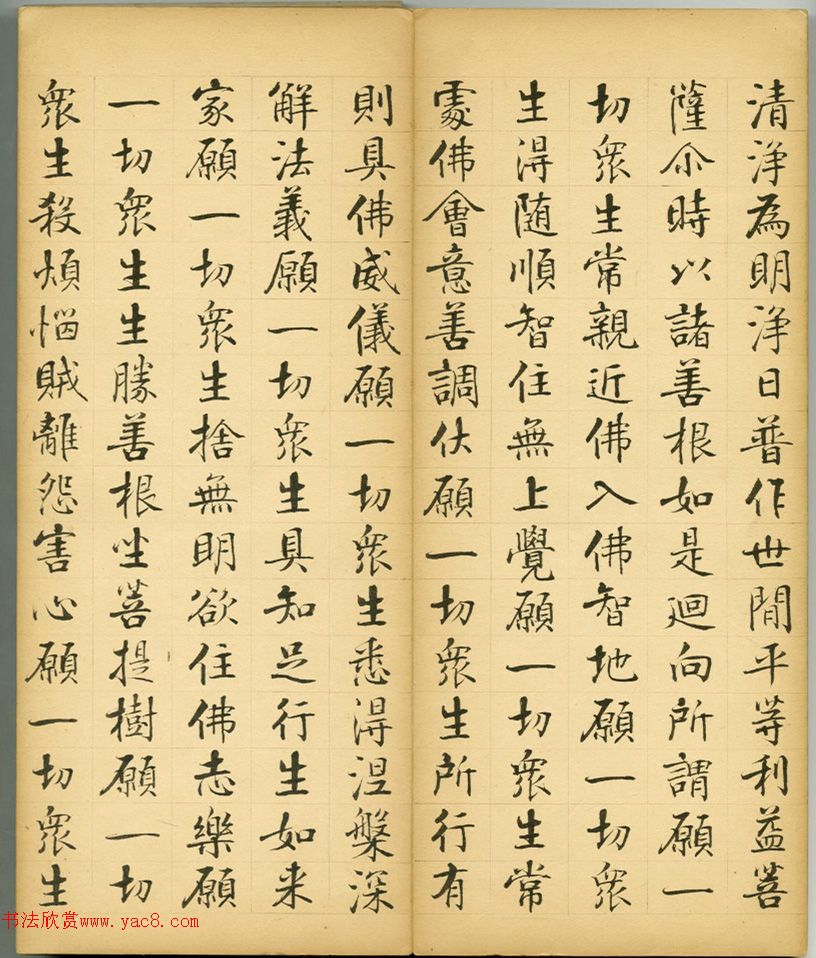 清淨為明淨日普作世間平等利益菩
薩尒時以諸善根如是迴向所謂願一
切衆生常親近佛入佛智地願一切衆
生得随順智住無上覺願一切衆生常
處佛會意善調伏願一切衆生所行有
則具佛威儀願一切衆生悉得涅槃深
解法義願一切衆生具知足行生如来
家願一切衆生捨無明欲住佛志樂願
一切衆生生勝善根坐菩提樹願一切
衆生殺煩惱賊離怨害心願一切衆生
书法欣赏www.yac8.com